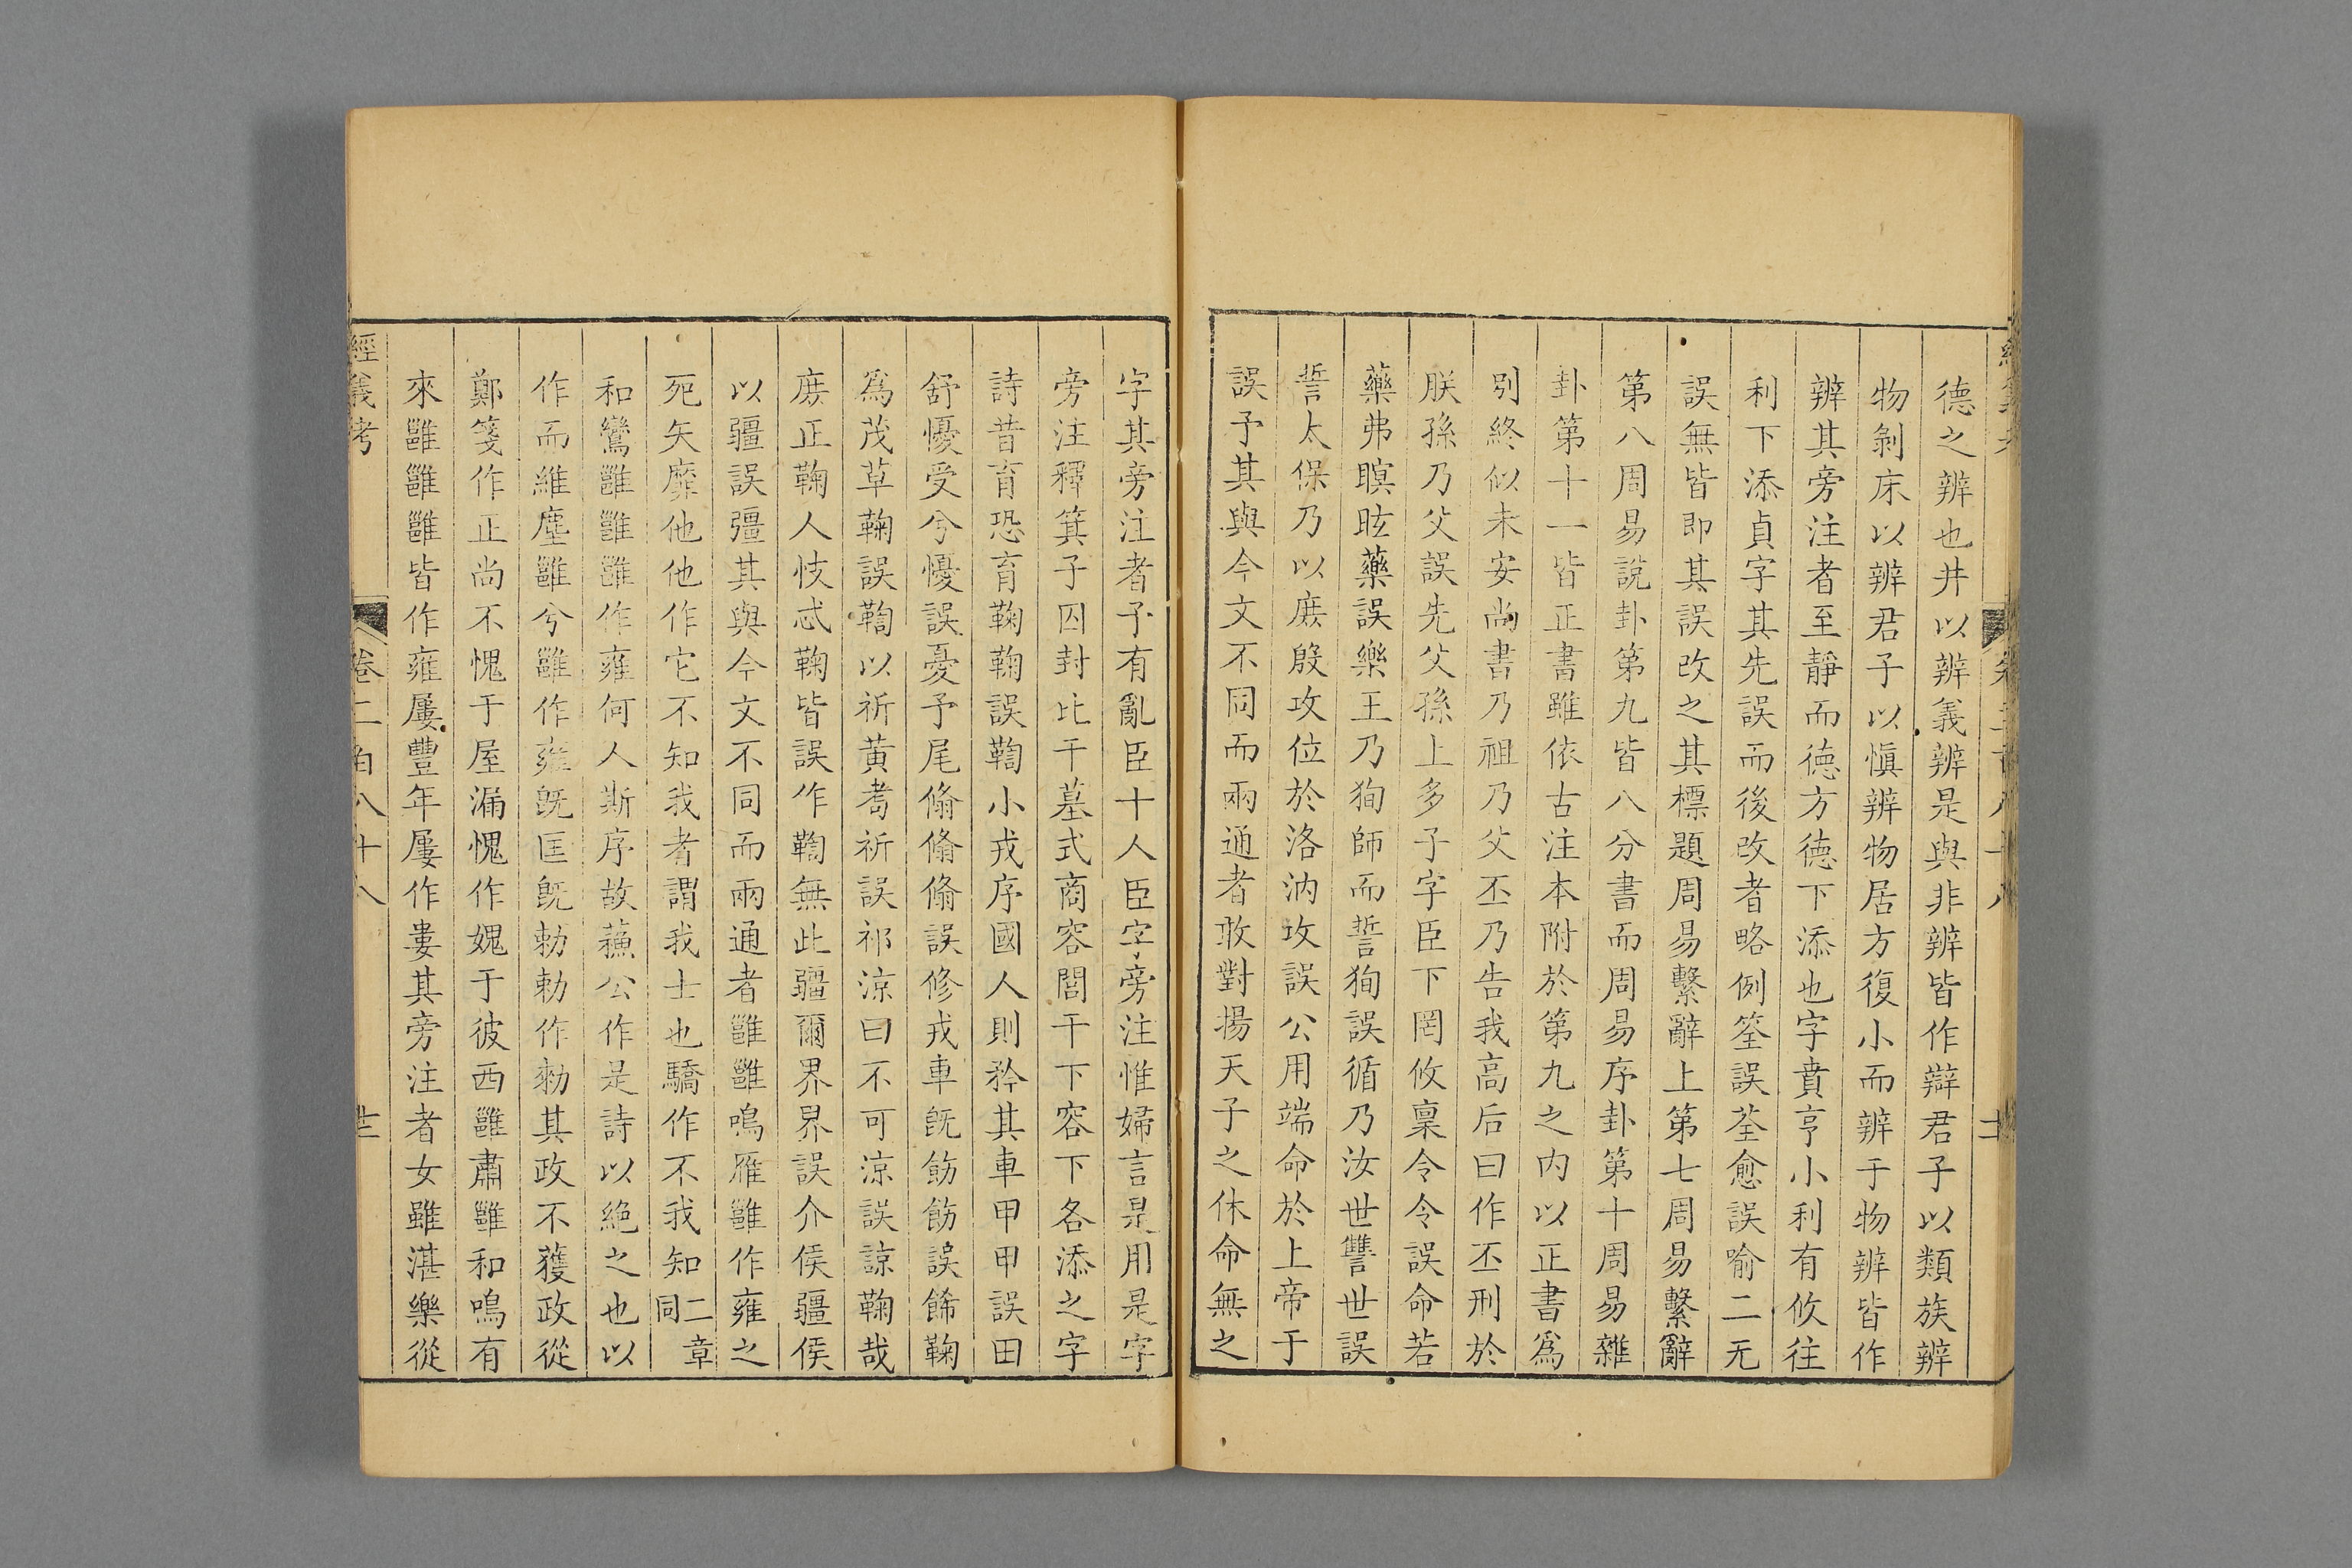 德之辨也井以辨義辨是與非辨皆作辯君子以類族辨
物剝床以辨君子以慎辨物居方復小而辨于物辨皆作
辨其旁注者至靜而德方德下添也字賁亨小利有攸往
利下添貞字其先誤而後改者略例筌誤荃愈誤喻二无
誤無皆即其誤改之其標題周易繫辭上第七周易繫辭
第八周易說卦第九皆八分書而周易序卦第十周易雜
卦第十一皆正書雖依古注本附於第九之内以正書爲
别終似未安尚書乃祖乃父丕乃告我高后曰作丕刑於
朕孫乃父誤先父孫上多子字臣下罔攸稟令令誤命若
藥弗瞑眩藥誤樂王乃狥師而誓狥誤循乃汝世讐世誤
誓太保乃以庶殷攻位於洛汭攻誤公用端命於上帝于
誤予其與今文不同而兩通者敢對揚天子之休命無之
字其旁注者予有亂臣十人臣字旁注惟婦言是用是字
旁注釋箕子囚封比干墓式商容閭干下容下各添之字
詩昔育恐育鞠鞠誤鞫小戎序國人則矜其車甲甲誤田
舒懮受兮懮誤憂予尾翛翛翛誤修戎車旣飭飭誤餙鞠
爲茂草鞠誤鞫以祈黄耇祈誤祁涼曰不可涼誤諒鞠哉
庶正鞠人忮忒鞠皆誤作鞫無此疆爾界界誤介侯疆侯
以疆誤彊其與今文不同而兩通者雝雝鳴雁雝作雍之
死矢靡他他作它不知我者謂我士也驕作不我知二章同
和鸞雝雝雝作雍何人斯序故蘇公作是詩以絶之也以
作而維塵雝兮雝作雍旣匡旣勑勑作勅其政不獲政從
鄭箋作正尚不愧于屋漏愧作媿于彼西雝肅雝和鳴有
來雝雝雝皆作雍屢豐年屢作婁其旁注者女雖湛樂從
經義考 卷二百八十八 廿